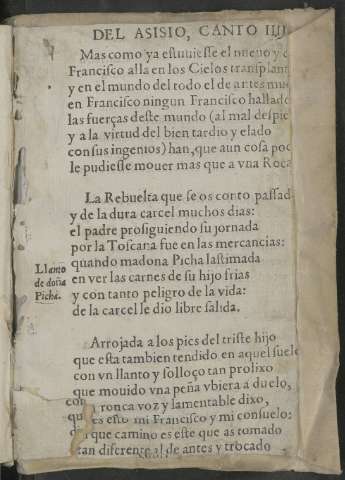 DEL ASISIO, CANTO IIII
Mas como ya estuuiesse el nueuo y
Francisco alla en los Cielos transplant
y en el mundo del todo el de antes mue
en Francisco ningun Francisco hallado
las fuerças deste mundo (al mal despie
y a la virtud del bien tardio y elado
con sus ingenios) han, que aun cosa poc
le pudiesse mouer mas que a vna Roca
La Rebuelta que se os conto passad
y de la dura carcel muchos dias:
el padre prosiguiendo su jornada
por la Toscana fue en las mercancias:
quando madona Picha lastimada
en ver las carnes de su hijo frias
y con tanto peligro de la vida:
de la carcel le dio libre salida.
Llanto
de doña
Picha.
Arrojada a los pies del triste hijo
que esta tambien tendido en aquel suelo
con vn llanto y solloço tan prolixo
que mouido vna peña vbiera a duelo,
con ronca voz y lamentable dixo,
que es esto mi Francisco y mi consuelo:
que camino es este que as tomado
tan diferente al de antes y trocado